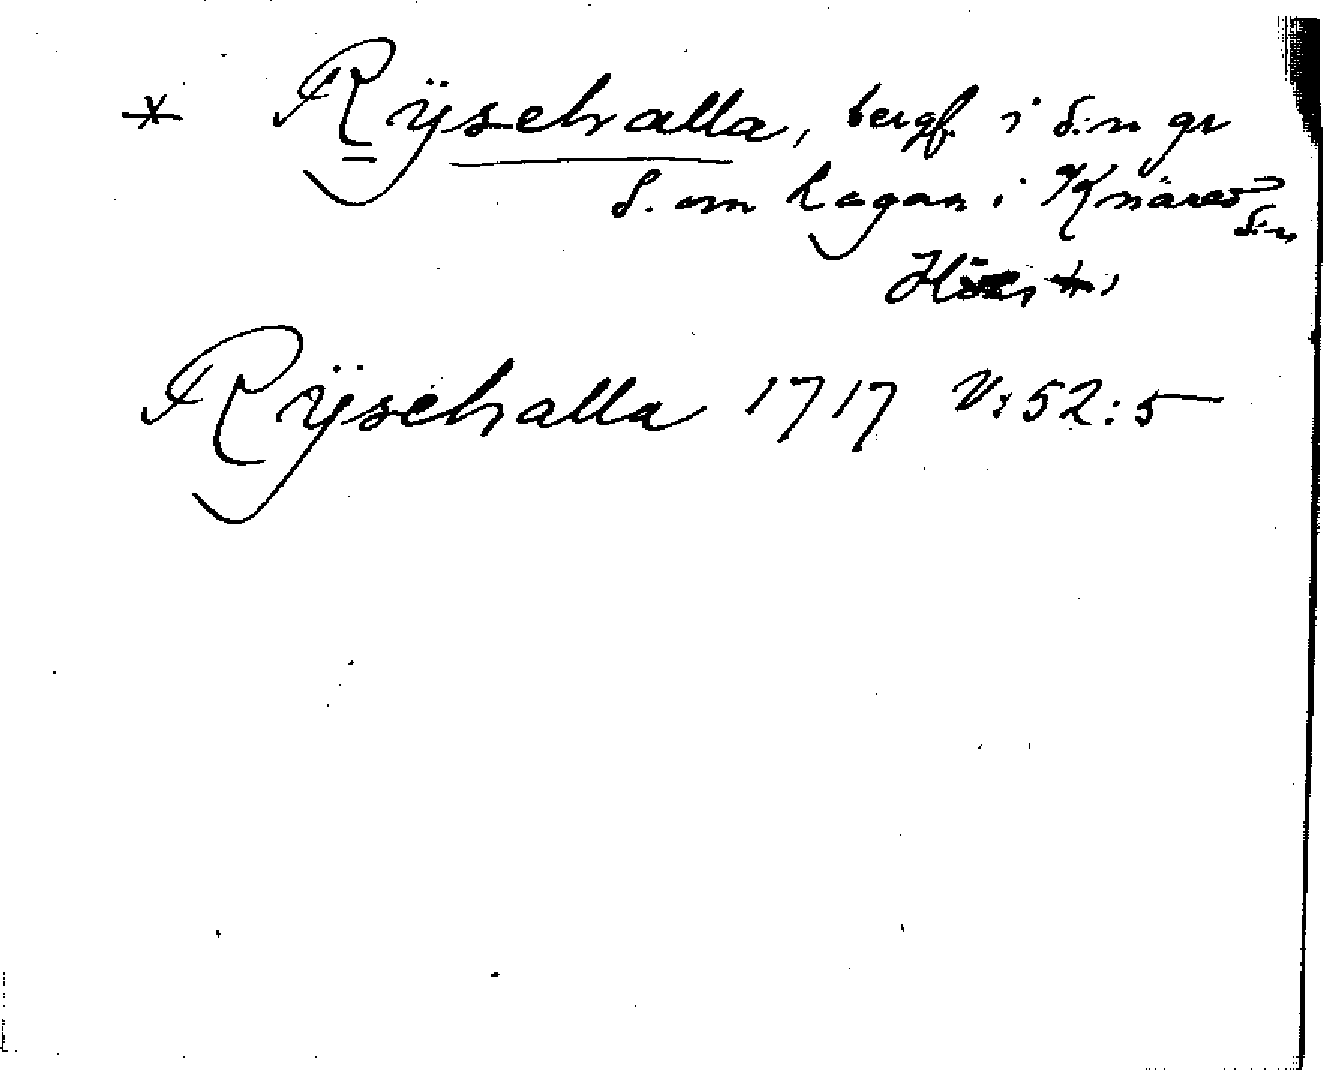 * Rÿsehalla, bergf. i S:n gr
S. om Lagan i Knäred
S:n
Rÿsehalla 1717 V:52:5